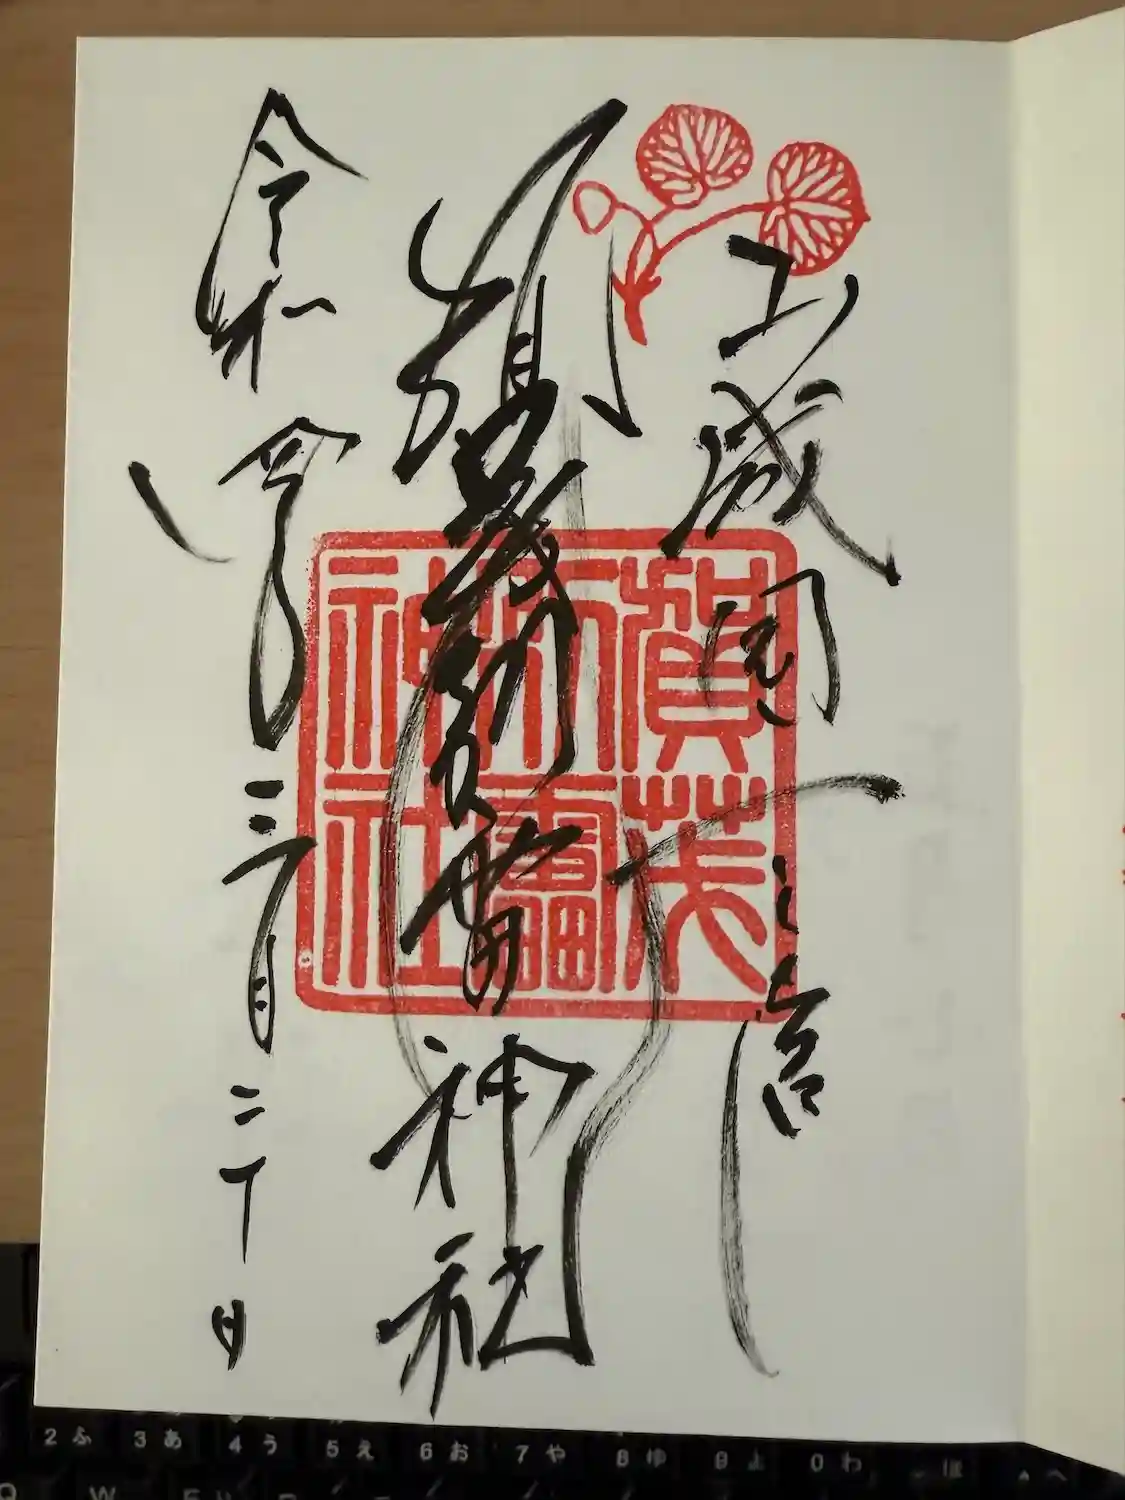 山城国一之宮
賀茂別雷神社
令和 年三月二十日
賀茂
別雷
神社
2ふ 3あ 4う 5え 6お 7や 8ゆ 9よ 0わ ほ へ
Q W E